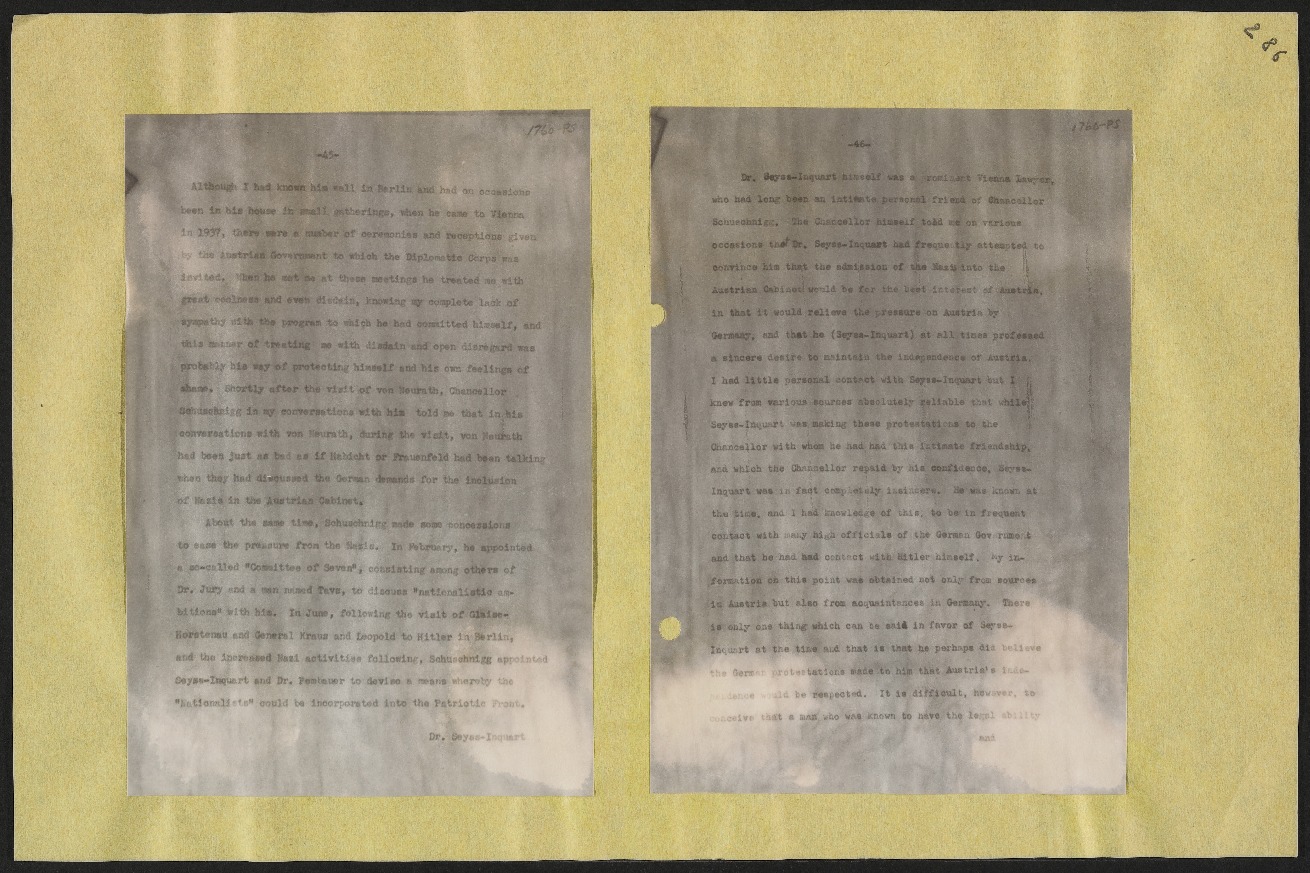 286
1760-PS
-45-
Although I had known him well in Berlin and had on occasions
been in his house in small gatherings, when he came to Vienna
in 1937, there were a number of ceremonies and receptions given
by the Austrian Government to which the Diplomatic Corps was
invited. When he met me at these meetings he treated me with
great coolness and even disdain, knowing my complete lack of
sympathy with the program to which he had committed himself, and
this manner of treating me with disdain and open disregard was
probably his way of protecting himself and his own feelings of
shame. Shortly after the visit of von Neurath, Chancellor
Schuschnigg in my conversations with him told me that in his
conversations with von Neurath, during the visit, von Neurath
had been just as bad as if Habicht or Frauenfeld had been talking
when they had discussed the German demands for the inclusion
of Nazis in the Austrian Cabinet.
About the same time, Schuschnigg made some concessions
to ease the pressure from the Nazis. In February, he appointed
a so-called "Committee of Seven", consisting among others of
Dr. Jury and a man named Tavs, to discuss "nationalistic am-
bitions" with him. In June, following the visit of Glaise-
Horstenau and General Kraus and Leopold to Hitler in Berlin,
and the increased Nazi activities following, Schuschnigg appointed
Seyss-Inquart and Dr. Pembauer to devise a means whereby the
"Nationalists" could be incorporated into the Patriotic Front.
Dr. Seyss-Inquart
1760-PS
-46-
Dr. Seyss-Inquart himself was a prominent Vienna Lawyer,
who had long been an intimate personal friend of Chancellor
Schuschnigg. The Chancellor himself told me on various
occasions that Dr. Seyss-Inquart had frequently attempted to
convince him that the admission of the Nazis into the
Austrian Cabinet would be for the best interest of Austria,
in that it would relieve the pressure on Austria by
Germany, and that he (Seyss-Inquart) at all times professed
a sincere desire to maintain the independence of Austria.
I had little personal contact with Seyss-Inquart but I
knew from various sources absolutely reliable that while
Seyss-Inquart was making these protestations to the
Chancellor with whom he had had this intimate friendship,
and which the Chancellor repaid by his confidence, Seyss-
Inquart was in fact completely insincere. He was known at
the time, and I had knowledge of this, to be in frequent
contact with many high officials of the German Government
and that he had had contact with Hitler himself. My in-
formation on this point was obtained not only from sources
in Austria but also from acquaintances in Germany. There
is only one thing which can be said in favor of Seyss-
Inquart at the time and that is that he perhaps did believe
the German protestations made to him that Austria's inde-
pendence would be respected. It is difficult, however, to
conceive that a man who was known to have the legal ability
and